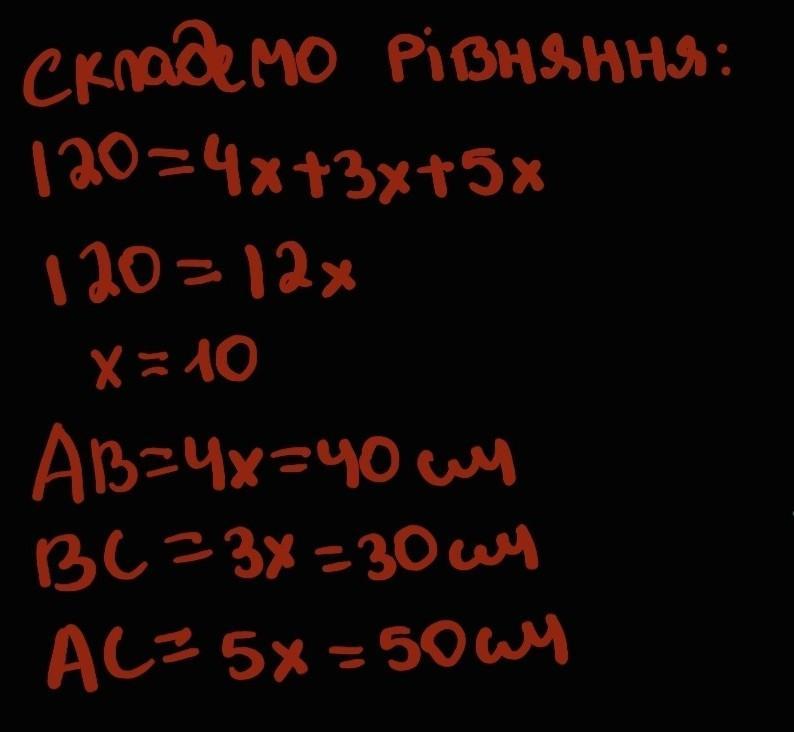 Складемо рівняння:
120=4x+3x+5x
120=12x
x=10
AB=4x=40 см
BC=3x=30 см
AC=5x=50 см